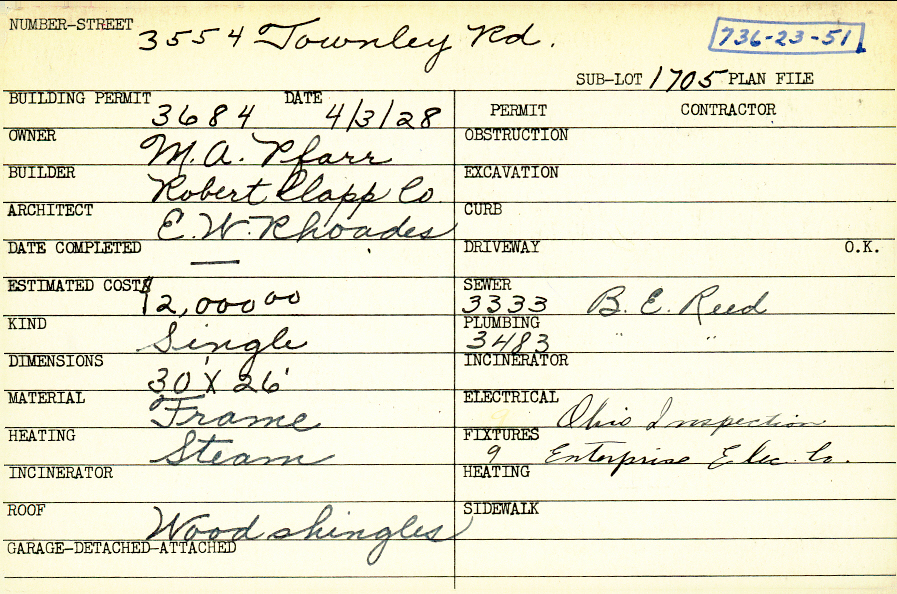 NUMBER-STREET 3554 Townley Rd. 736-23-51
SUB-LOT 1705 PLAN FILE
BUILDING PERMIT 3684 DATE 4/3/28
PERMIT CONTRACTOR
OWNER M.A. Pfarr
OBSTRUCTION
BUILDER Robert Clapp Co
EXCAVATION
ARCHITECT E.W. Rhoades
CURB
DATE COMPLETED —
DRIVEWAY O.K.
ESTIMATED COST $12,000 00
SEWER 3333 B. E. Reed
KIND Single
PLUMBING 3483 "
DIMENSIONS 30' X 26'
INCINERATOR
MATERIAL Frame
ELECTRICAL Ohio Inspection
HEATING Steam
FIXTURES 9 Enterprise Elec. Co.
INCINERATOR
HEATING
ROOF Wood shingles
SIDEWALK
GARAGE-DETACHED-ATTACHED